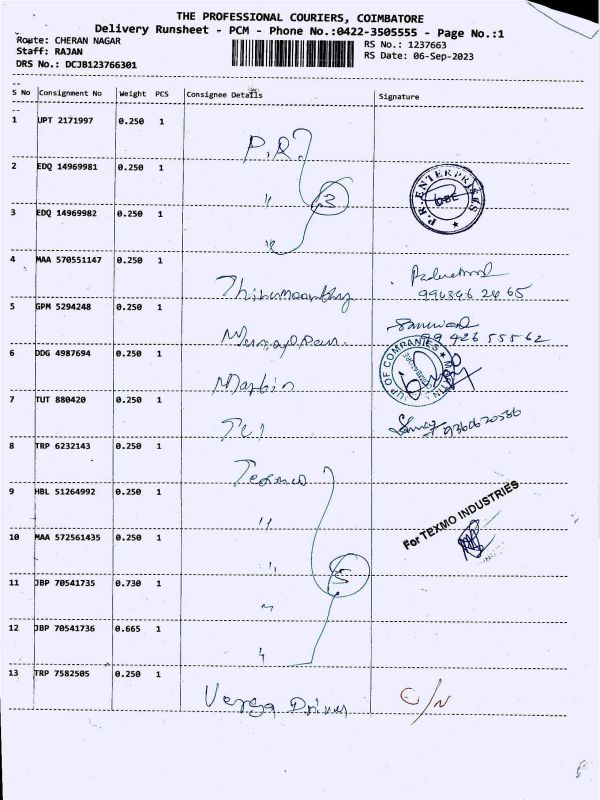 THE PROFESSIONAL COURIERS, COIMBATORE
Delivery Runsheet - PCM - Phone No.:0422-3505555 - Page No.:1
Route: CHERAN NAGAR RS No.: 1237663
Staff: RAJAN RS Date: 06-Sep-2023
DRS No.: DCJB123766301
S No Consignment No Weight PCS Consignee Details Signature
1 UPT 2171997 0.250 1 P.R.
2 EDQ 14969981 0.250 1 "
3
P.R.ENTERPRISES
CBE
3 EDQ 14969982 0.250 1 "
4 MAA 570551147 0.250 1 Thirumoorthy
5 GPM 5294248 0.250 1
99426 55562
6 DDG 4987694 0.250 1 Martin
UP OF COMPANIES ★ MARTIN
7 TUT 880420 0.250 1 TCI
9360620536
8 TRP 6232143 0.250 1 Texmo
9 HBL 51264992 0.250 1 "
For TEXMO INDUSTRIES
10 MAA 572561435 0.250 1 "
5
11 JBP 70541735 0.730 1 "
12 JBP 70541736 0.665 1 "
13 TRP 7582505 0.250 1 C/N